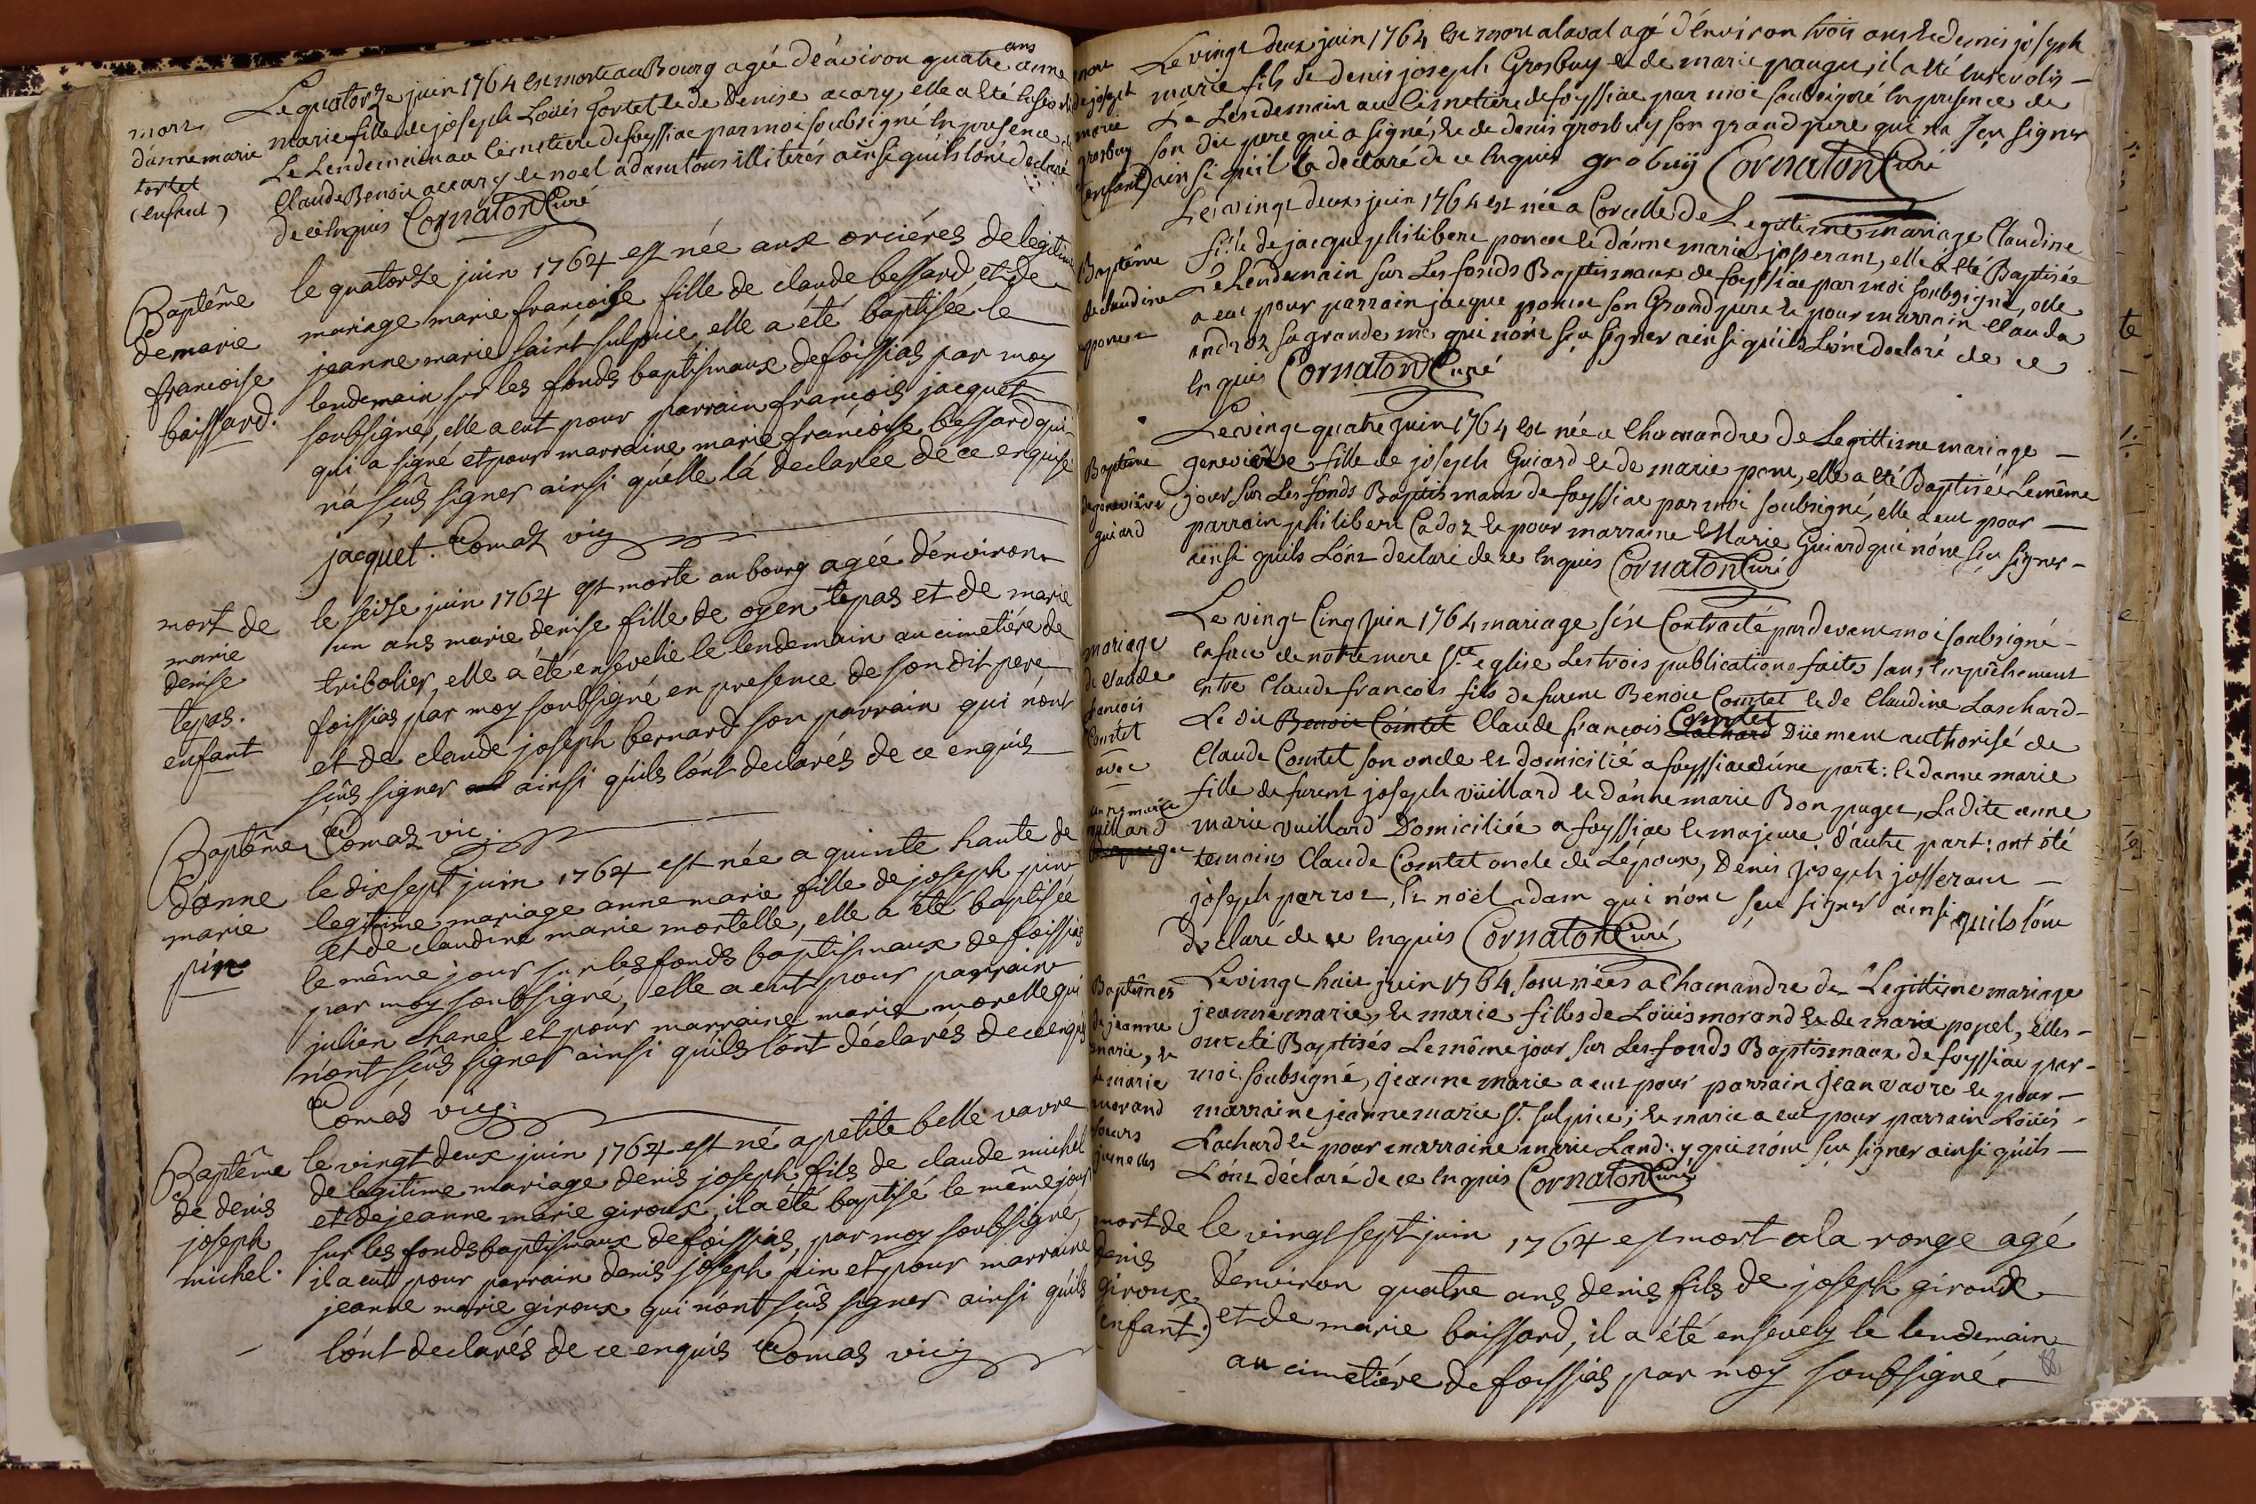 mort
d'anne marie
tortet
(enfant)
Le quatorze juin 1764 est morte au Bourg agée d'environ quatre ans anne
marie fille de joseph Loüis tortet et de denise accary, elle a été
Le Lendemain au Cimetiere de foyssiac par moi soubsigné en presence de
Claude Benoit accary et noel adam tous illiterés ainsi quils l'ont declaré
de ce Enquis Cornaton Curé
Baptême
de marie
francoise
baissard.
le quatorze juin 1764 est née aux orcières de legitime
mariage marie francoise fille de claude bessard et de
jeanne marie saint sulpice, elle a été baptisée le
lendemain sur les fonds baptismaux de foissias par moy
soubsigné, elle a eut pour parrain francois jacquet
qui a signé et pour marraine marie francoise bessard qui
n'a sçûs signer ainsi quelle l'a declarée de ce enquise
jacquet. Comas vic
mort de
marie
denise
tepas.
enfant
le seize juin 1764 est morte au bourg agée d'environ
un ans marie denise fille de oyen tepas et de marie
tribolier, elle a été ensevelie le lendemain au cimetiére de
foissias par moy soubsigné en presence de son dit pere
et de claude joseph bernard son parrain qui n'ont
sçûs signer ainsi quils l'ont declarés de ce enquis
Comas vic.
Baptême
d'anne
marie
pin
le dix sept juin 1764 est née a quinte haute de
legitime mariage anne marie fille de joseph pin
et de claudine marie mortelle, elle a été baptisée
le même jour sur les fonds baptismaux de foissias
par moy soubsigné, elle a eut pour parrain
julien chanel et pour marraine marie morelle qui
n'ont sçûs signer ainsi quils l'ont déclarés de ce enquis
Comas vic
Baptême
de denis
joseph
michel.
le vingt deux juin 1764 est né a petite belle vavre
de legitime mariage denis joseph fils de claude michel
et de jeanne marie giroux, il a été baptisé le même jour
sur les fonds baptismaux de foissias, par moy soubsigné,
il a eut pour parrain denis joseph pin et pour marraine
jeanne marie giroux qui n'ont sçûs signer ainsi quils
l'ont declarés de ce enquis Comas vic
mort
de joseph
marie
grosbuy
(enfant)
Le vingt deux juin 1764 est mort a laval agé d'environ trois ans et demis joseph
marie fils de denis joseph Grosbuy et de marie pauget, il a été Enseveli
Le Lendemain au Cimetiere de foyssiac par moi soubsigné En presence de
son dit pere qui a signé, et de denis grosbuy son grand pere qui na sçu signer
ainsi quil l'a declaré de ce Enquis grobuy Cornaton Curé
Baptême
de claudine
poncet
Le vingt deux juin 1764 est née a Corcelle de Legitime mariage Claudine
fille de jacque philibert poncet et d'anne marie josserant, elle a été Baptisée
Le Lendemain sur Les fonds Baptismaux de foyssiac par moi soubsigné, elle
a eut pour parrain jacque poncet son Grand pere et pour marraine Clauda
androz sa grande me qui n'ont sçu signer ainsi quils L'ont declaré de ce
Enquis Cornaton Curé
Baptême
de geneviève
guiard
Le vingt quatre juin 1764 est née a Chamandre de Legittime mariage
genevieve fille de joseph Guiard et de marie pont, elle a été Baptisée Le même
jour sur Les fonds Baptismaux de foyssiac par moi soubsigné, elle a eut pour
parrain philibert Cadoz et pour marraine Marie Guiard qui n'ont sçu signer
ainsi quils L'ont declaré de ce Enquis Cornaton Curé
mariage
de claude
francois
Comtet
avec
anne marie
vuillard
Le vingt Cinq juin 1764 mariage s'est Contracté pardevant moi soubsigné
en face de notre mere Ste eglise Les trois publications faites sans Empêchement
entre Claude francois fils de furent Benoit Comtet et de Claudine Laschard
Le dit Benoit Comtet Claude francois Comtet Düement authorisé de
Claude Comtet son oncle et domicilié a foyssiac d'une part: et d'anne marie
fille de furent joseph vüillard et d'anne marie Bonpuget, Ladite anne
marie vuillard Domiciliée a foyssiac et majeure d'autre part: ont été
temoins Claude Comtet oncle de Lépoux, Denis Joseph josserant
joseph perroz, et noël adam qui n'ont sçu signer ainsi quils l'ont
declaré de ce Enquis Cornaton Curé
Baptêmes
de jeanne
marie, et
de marie
morand
sœurs
jumelles
Le vingt huit juin 1764 sont nées a Chamandre de Legittime mariage
jeanne marie, et marie filles de Loüis morand et de marie popel, elles
ont été Baptisés Le même jour sur Les fonds Baptismaux de foyssiac par
moi soubsigné, jeanne marie a eut pour parrain jean vavre et pour
marraine jeanne marie St. sulpice; et marie a eut pour parrain Loüis
Lachard et pour marraine marie qui n'ont sçu signer ainsi quils
L'ont déclaré de ce Enquis Cornaton Curé
mort de
denis
giroux
(enfant.)
le vingt sept juin 1764 est mort a la ronge agé
d'environ quatre ans denis fils de joseph giroux
et de marie baissard, il a été ensevely le lendemain
au cimetiére de foissias par moy soubsigné